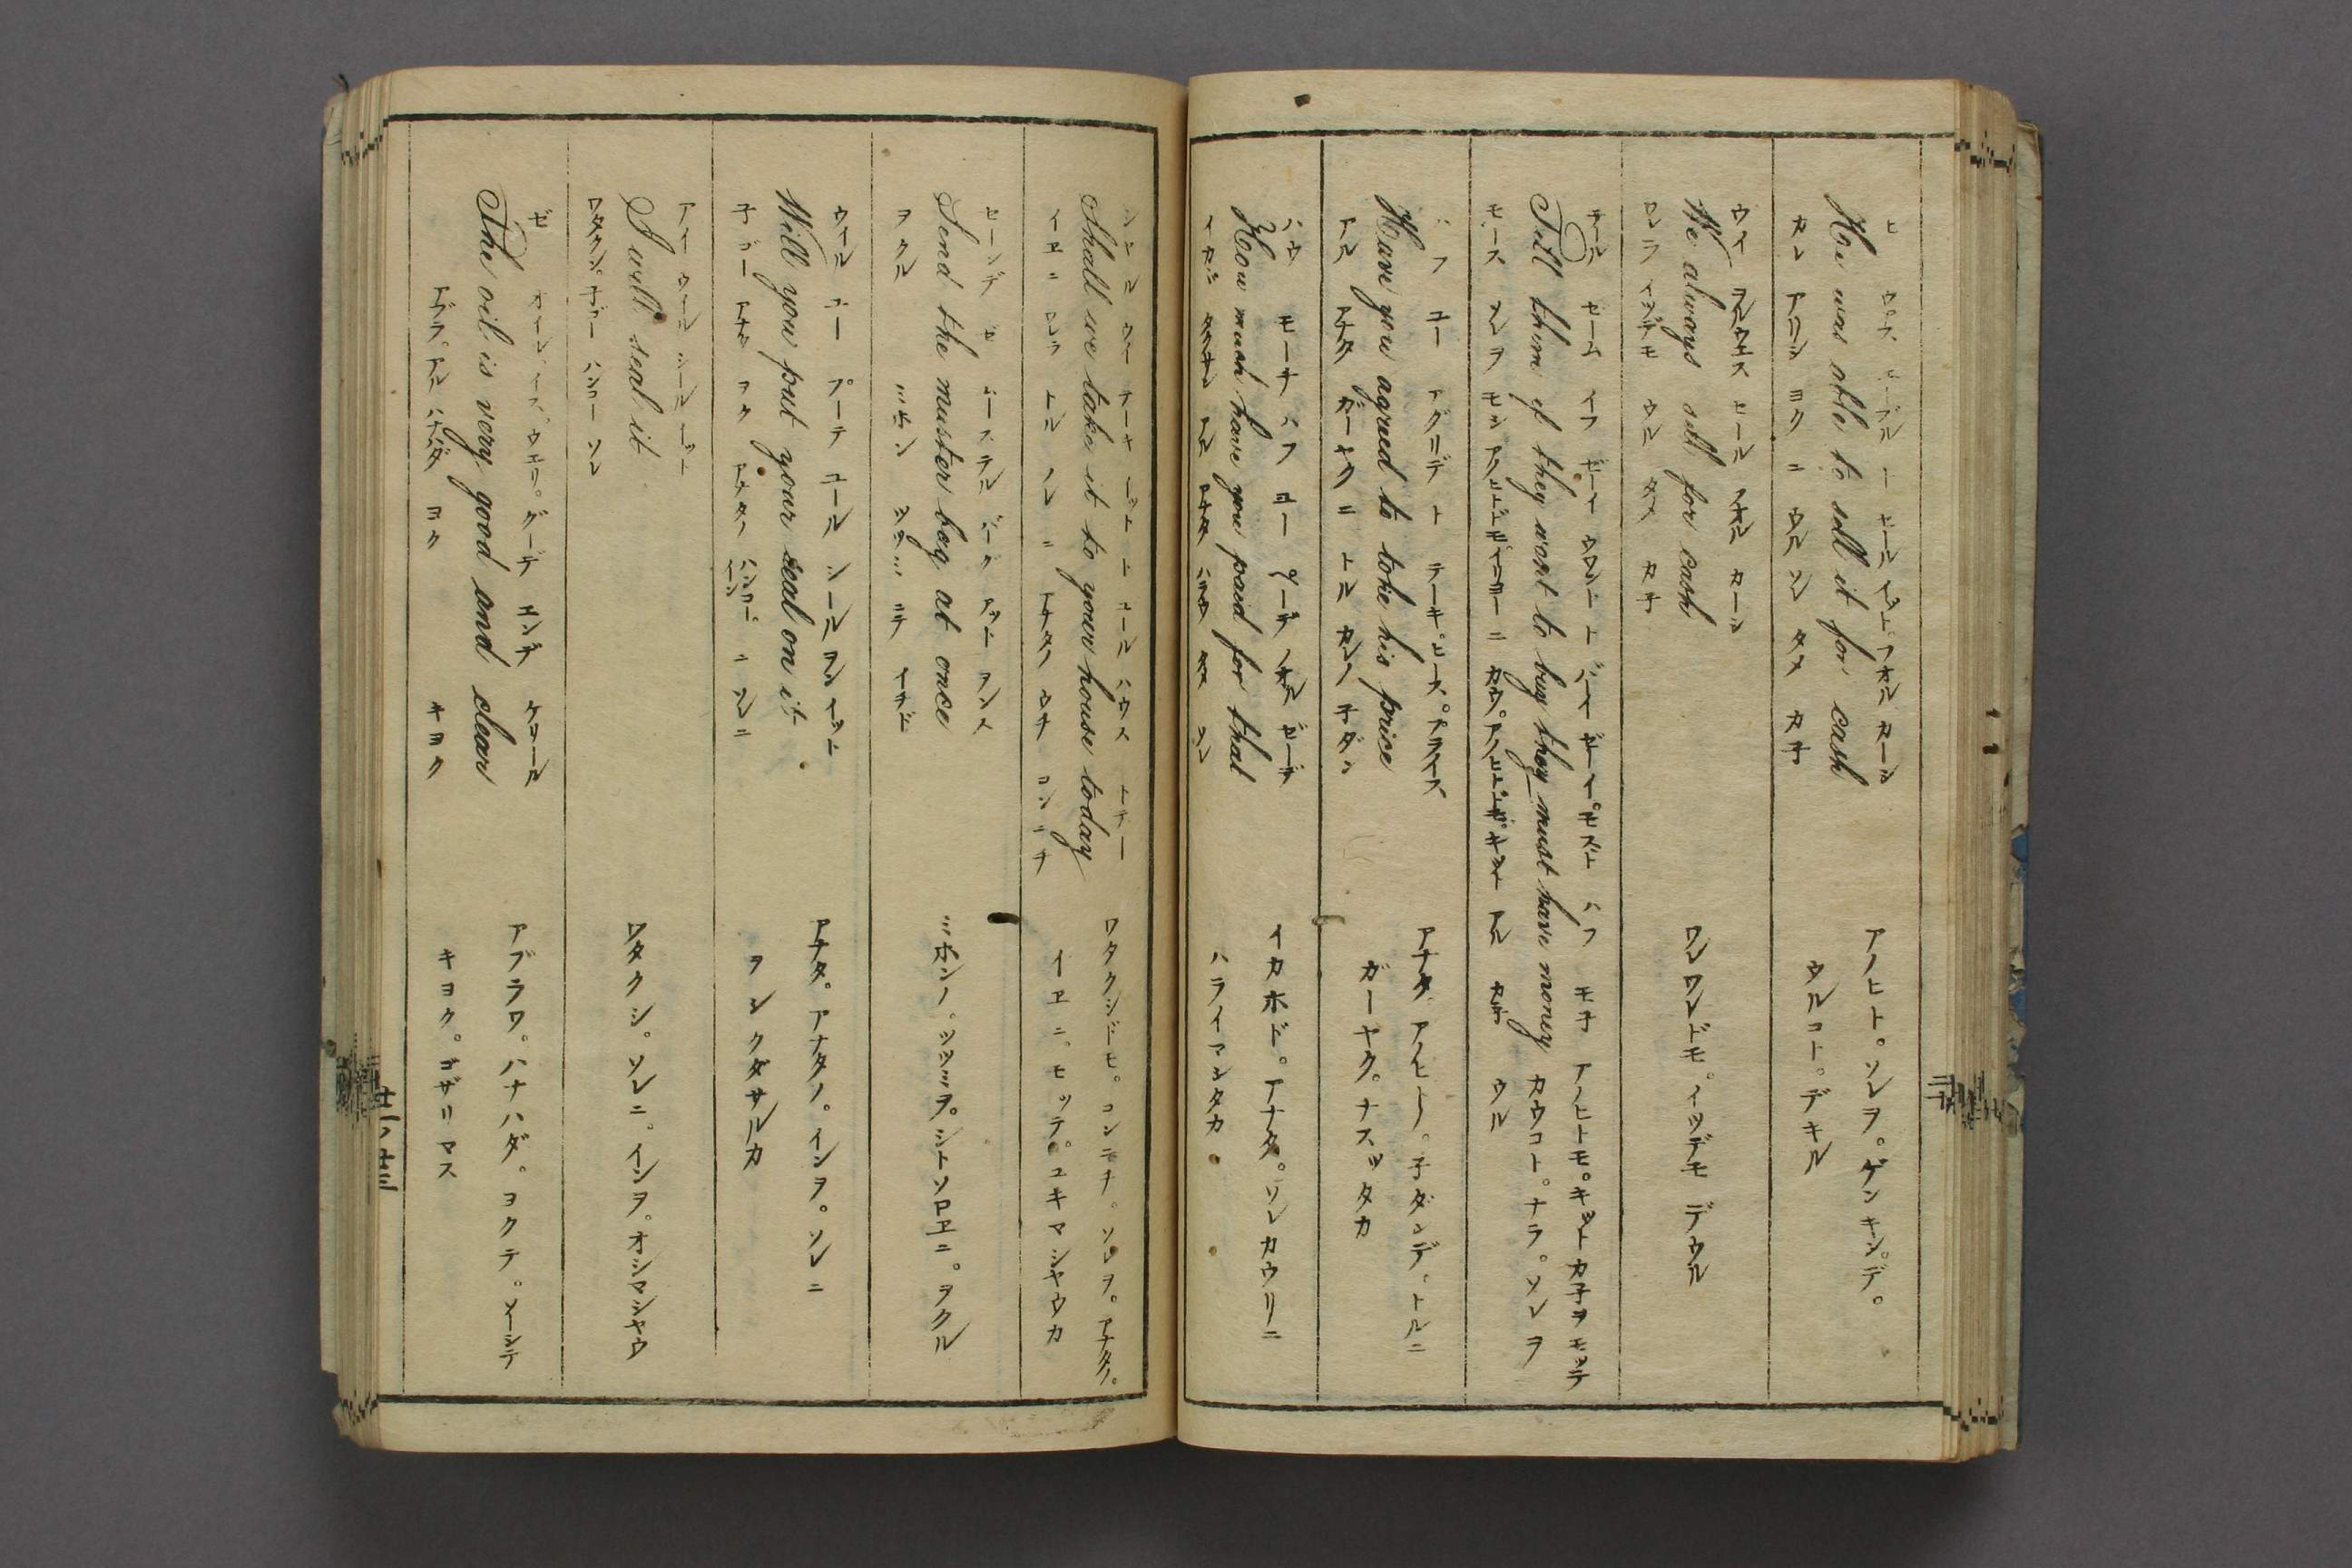 ヒ ウ゚ス エーブル ト セール イット フオル カーシ
He was able to sell it for cash
カレ アリシ ヨク ニ ウル ソレ タメ カ子
アノヒト。ソレヲ。ゲンキン。デ。
ウルコト。デキル
ウイ ヲルウエス セール フオル カーシ
We always sell for cash
ワレラ イツデモ ウル タメ カ子
ワレワレドモ。イツデモ デウル
テール ゼーム イフ ゼーイ ウヲント ト バーイ ゼーイ。モスト ハフ モ子
Tell them if they want to buy they must have money
アノヒトモ。キット カ子ヲ モッテ
カウコト。ナラ。ソレヲ
ウル
ハフ ユー アグリデ ト テーキ。ヒース。プライス
Have you agreed to take his price
アル アナタ ガーヤク ニ トル カレノ 子ダン
アナタ。アノヒト。子ダンデ。トルニ
ガーヤク。ナスッタカ
ハウ モーチ ハフ ユー ペーデ フオル ゼーデ
How much have you paid for that
イカニ タクサン アル アナタ ハラウ タメ ソレ
イカホド。アナタ。ソレカウリニ
ハライマシタカ
シヤル ウイ テーキ イット ト ユール ハウス トデー
Shall we take it to your house today
イエニ ワレラ トル ソレ ニ アナタノ ウチ コンニチ
ワタクシドモ。コンニチ。ソレヲ。アナタノ。
イエニ。モッテ。ユキマシヤウカ
センデ ゼ ムーステル バーグ アット ヲンス
Send the muster bag at once
ヲクル ミホン ツツミ ニテ イチド
ミホンノ。ツツミヲ。シトソロエニ。ヲクル
ウイル ユー プーテ ユール シール ヲン イット
Will you put your seal on it
子ゴー アナタ ヲク アナタノ ハンコー。イン ニ ソレニ
アナタ。アナタノ。インヲ。ソレニ
ヲシ クダサルカ
アイ ウイル シール イット
I will seal it
ワタクシ。子ゴー ハンコー ソレ
ワタクシ。ソレニ。インヲ。オシマシヤウ
ゼ オイル。イス。ウエリ。グーデ エンデ ケリール
The oil is very good and clear
アブラ。アル ハナハダ ヨク キヨク
アブラワ。ハナハダ。ヨクテ。ソーシテ
キヨク。ゴザリマス